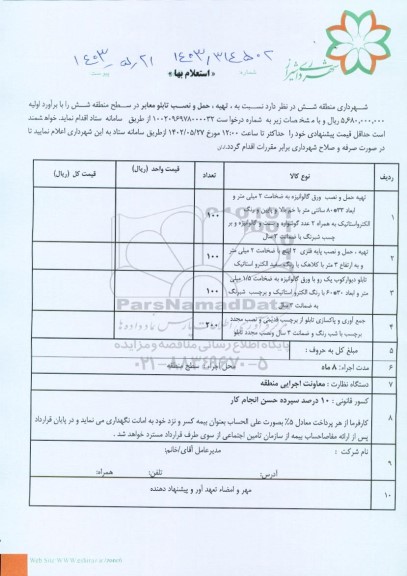 شهرداری شیراز
شماره ۱۴۰۳/۳۱۴۵۰۲
۱۴۰۳/۰۵/۲۱
پیوست
« استعلام بها »
شهرداری منطقه شش در نظر دارد نسبت به ، تهیه ، حمل و نصب تابلو معابر در سطح منطقه شش را با برآورد اولیه
۵,۶۸۰,۰۰۰,۰۰۰ ریال و با مشخصات زیر به شماره درخواست ۱۰۰۲۰۹۶۹۷۸۰۰۰۰۳۲ از طریق سامانه ستاد اقدام نماید. خواهشمند
است حداقل قیمت پیشنهادی خود را حداکثر تا ساعت ۱۲:۰۰ مورخ ۱۴۰۲/۰۵/۲۷ از طریق سامانه ستاد به این شهرداری اعلام نمایید تا
در صورت صرفه و صلاح شهرداری برابر مقررات اقدام گردد.
ردیف نوع کالا تعداد قیمت واحد (ریال) قیمت کل (ریال)
۱ تهیه حمل و نصب ورق گالوانیزه به ضخامت ۲ میلی متر و
ابعاد ۳۳*۸۰ سانتی متر با خم بالا و پایین و رنگ
الکترواستاتیک به همراه ۲ عدد گوشواره و بست و گالوانیزه و بر
چسب شبرنگ با ضمانت ۳ سال ۱۰۰
۲ تهیه ، حمل و نصب پایه فلزی ۲ اینچ با ضخامت ۲ میلی متر
و به ارتفاع ۳ متر با کلاهک با رنگ سفید الکترو استاتیک ۱۰۰
۳ تابلو دیوارکوب یک رو با ورق گالوانیزه به ضخامت ۱/۵ میلی
متر و ابعاد ۳۰*۶۰ با رنگ الکترو استاتیک و برچسب شبرنگ
به ضمانت ۳ سال ۱۰۰
۴ جمع آوری و پاکسازی تابلو از برچسب قدیمی و نصب مجدد
برچسب با شب رنگ و ضمانت ۳ سال ونصب مجدد تابلو ۲۰۰
۵ مبلغ کل به حروف :
۶ مدت اجراء: ۸ ماه محل اجراء: سطح منطقه
۷ دستگاه نظارت : معاونت اجرایی منطقه
۸ کسور قانونی : ۱۰ درصد سپرده حسن انجام کار
کارفرما از هر پرداخت معادل ۵٪ بصورت علی الحساب بعنوان بیمه کسر و نزد خود به امانت نگهداری می نماید و در پایان قرارداد
پس از ارائه مفاصاحساب بیمه از سازمان تامین اجتماعی از سوی طرف قرارداد مسترد خواهد شد .
۹ نام شرکت : مدیرعامل آقای/خانم:
آدرس: تلفن: همراه:
۱۰ مهر و امضاء تعهد آور و پیشنهاد دهنده
ParsNamadData
پایگاه اطلاع رسانی مناقصه و مزایده
۰۲۱-۸۸۳۴۹۶۷۰-۵